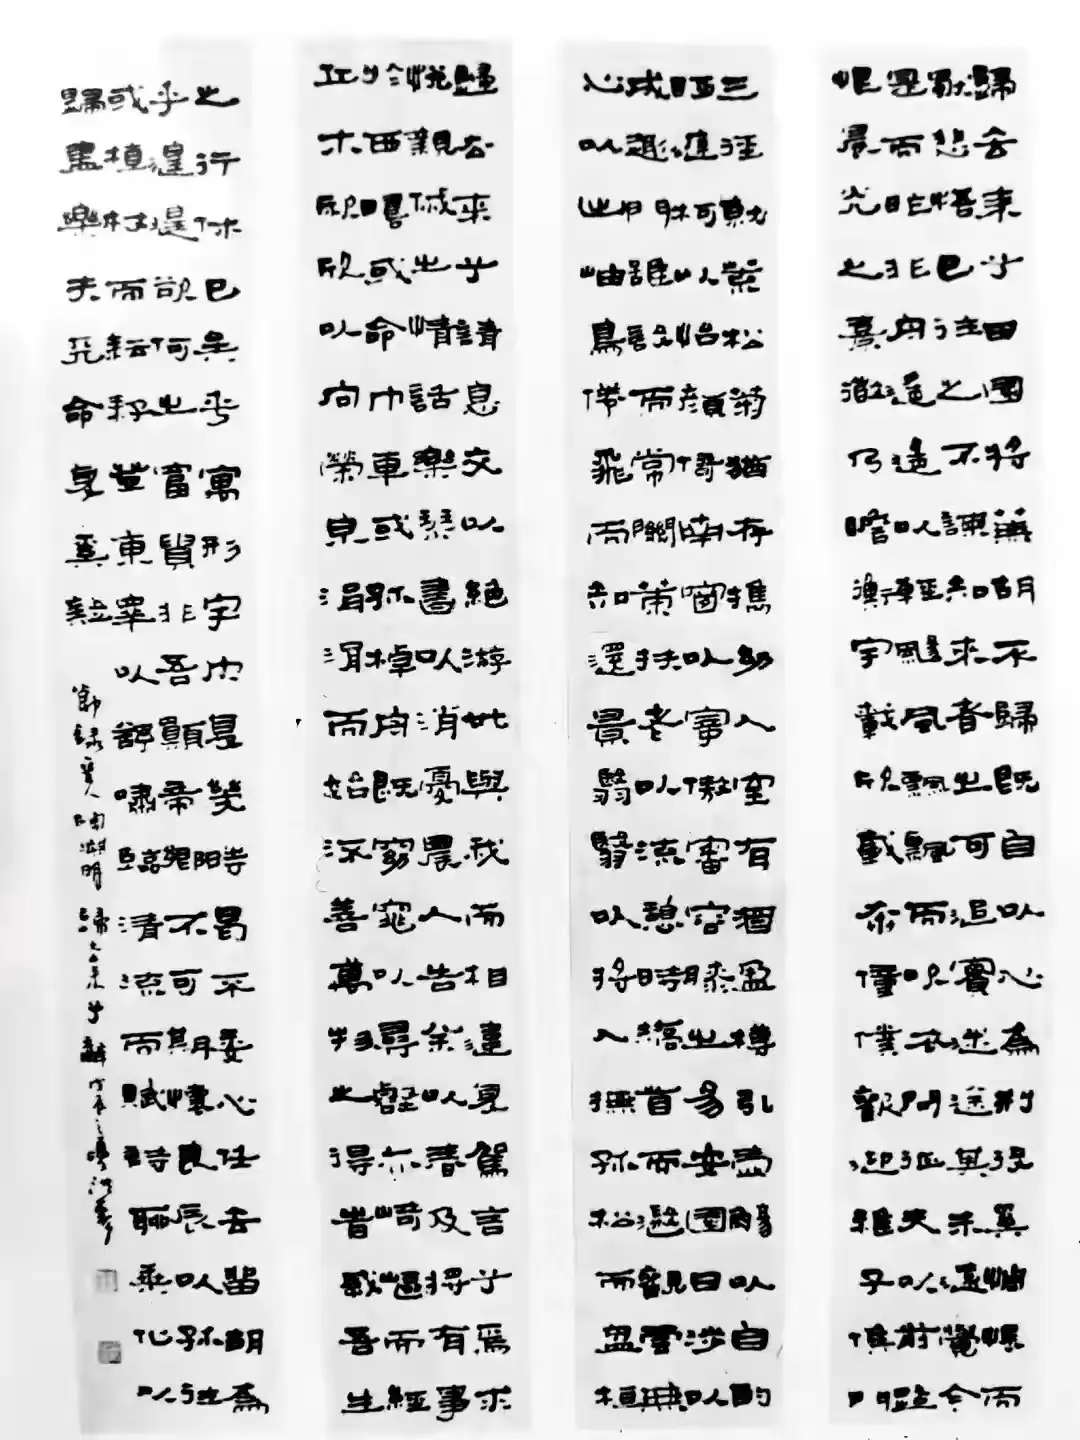 歸去来兮田園將蕪胡不歸既自以心為形役奚惆悵而
獨悲悟已往之不諫知来者之可追實迷途其未遠覺今
是而昨非舟遙遙以輕颺風飄飄而吹衣問征夫以前路
恨晨光之熹微乃瞻衡宇載欣載奔僮僕歡迎稚子候門
三徑就荒松菊猶存攜幼入室有酒盈樽引壺觴以自酌
眄庭柯以怡顏倚南窗以寄傲審容膝之易安園日涉以
成趣門雖設而常關策扶老以流憩時矯首而遐觀雲無
心以出岫鳥倦飛而知還景翳翳以將入撫孤松而盤桓
歸去来兮請息交以絕游世與我而相違復駕言兮焉求
悅親戚之情話樂琴書以消憂農人告余以春及將有事
於西疇或命巾車或棹孤舟既窈窕以尋壑亦崎嶇而經
丘木欣欣以向榮泉涓涓而始流善萬物之得時感吾生
之行休已矣乎寓形宇内復幾時曷不委心任去留胡為
乎遑遑欲何之富貴非吾願帝鄉不可期懷良辰以孤往
或植杖而耘耔登東皋以舒嘯臨清流而賦詩聊乘化以
歸盡樂夫天命復奚疑
節錄晋人陶淵明歸去来兮辭